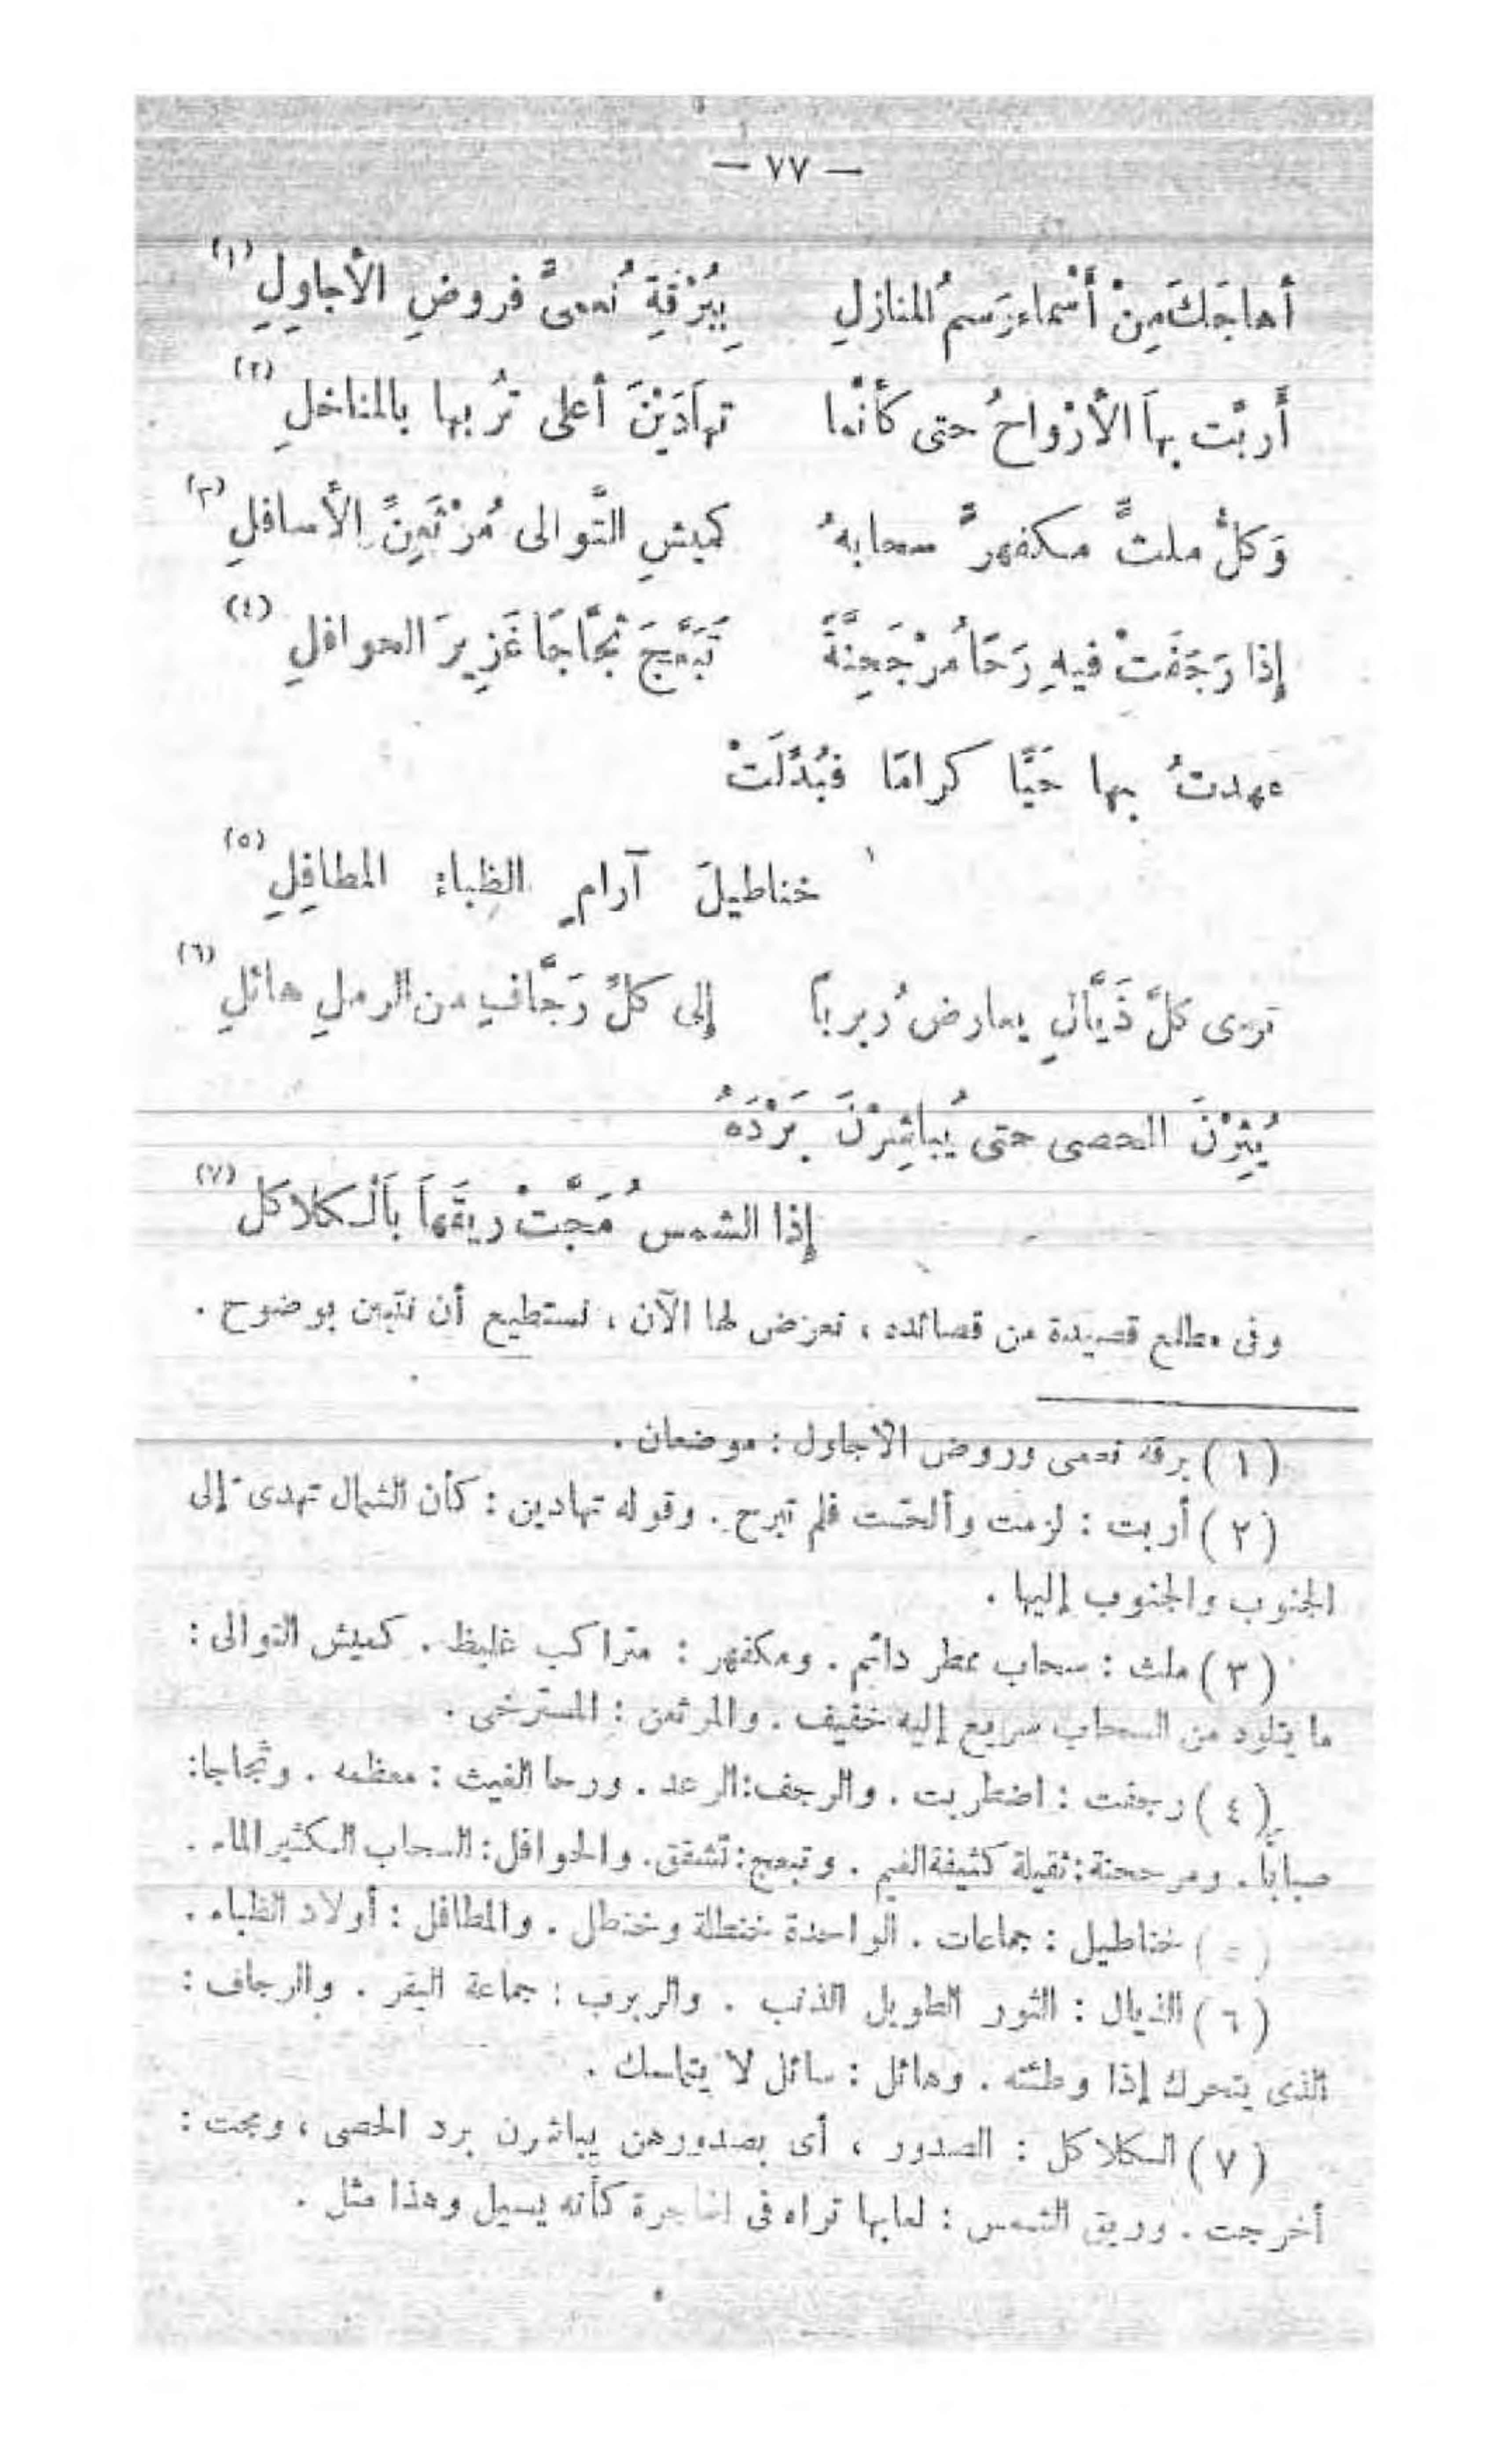 — ٧٧ —
أهاجَكَ مِنْ أَسْماء رَسمُ المنازلِ بِبُرْقَةِ نُعمىَّ فروضِ الأجاوِلِ (١)
أَربَّت بِهاَ الأرْواحُ حتى كأنَّما تهاَدَيْنَ أعلى تُربها بالمناخلِ (٢)
وَكلُّ ملثٍّ مكفهرٍّ سحابهُ كميشِ التَّوالى مُرْثَعِنِّ الأسافلِ (٣)
إِذا رَجَفَتْ فيهِ رَحًا مُرْجَحِنَّةً تَبَعَّجَ ثَجَّاجًا غَزِيرَ الحوافلِ (٤)
عهدتُ بها حَيًّا كرامًا فبُدِّلَتْ
خناطيلَ آرامٍ الظِباء المطافِلِ (٥)
ترى كلَّ ذَيَّالٍ يعارضُ ربرباً إلى كلِّ رَجَّافٍ من الرملِ هائلِ (٦)
يُثِرْنَ الحصى حتى يُباشِرْنَ بَرْدَهُ
إِذا الشمسُ مَجَّتْ ريقَهاَ بَالكلاكل (٧)
وفى مطلع قصيدة من قصائده ، نعرض لها الآن ، نستطيع أن نتبين بوضوح .
( ١ ) برقة نعمى وروض الأجاول : موضعان .
( ٢ ) أربت : لزمت وألحّت فلم تبرح . وقوله تهادين : كأن الشمال تهدى إلى
الجنوب والجنوب إليها .
( ٣ ) ملث : سحاب ممطر دائم . ومكفهر : متراكب غليظ . كميش التوالى :
ما يتلوه من السحاب سريع إليه خفيف . والمرثعن : المسترخى .
( ٤ ) رجفت : اضطربت . والرجف : الرعد . ورحا الغيث : معظمه . وثجاجا :
صباباً . ومرجحنة : ثقيلة كثيفة الغيم . وتبعج : تشقق . والحوافل : السحاب الكثير الماء .
( ٥ ) خناطيل : جماعات . الواحدة خنطلة وخنطل . والمطافل : أولاد الظباء .
( ٦ ) الذيال : الثور الطويل الذنب . والربرب : جماعة البقر . والرجاف :
الذى يتحرك إذا وطئته . وهائل : سائل لا يتماسك .
( ٧ ) الكلاكل : الصدور ، أى بصدورهن يباشرن برد الحصى ، ومجت :
أخرجت . وريق الشمس : لعابها تراه فى الهاجرة كأنه يسيل وهذا مثل .